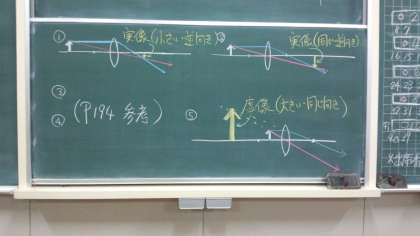 ① 実像(小さい・逆向き)
② 実像(同じ・逆向き)
③
④ (P194 参考)
⑤ 虚像(大きい・同じ向き)